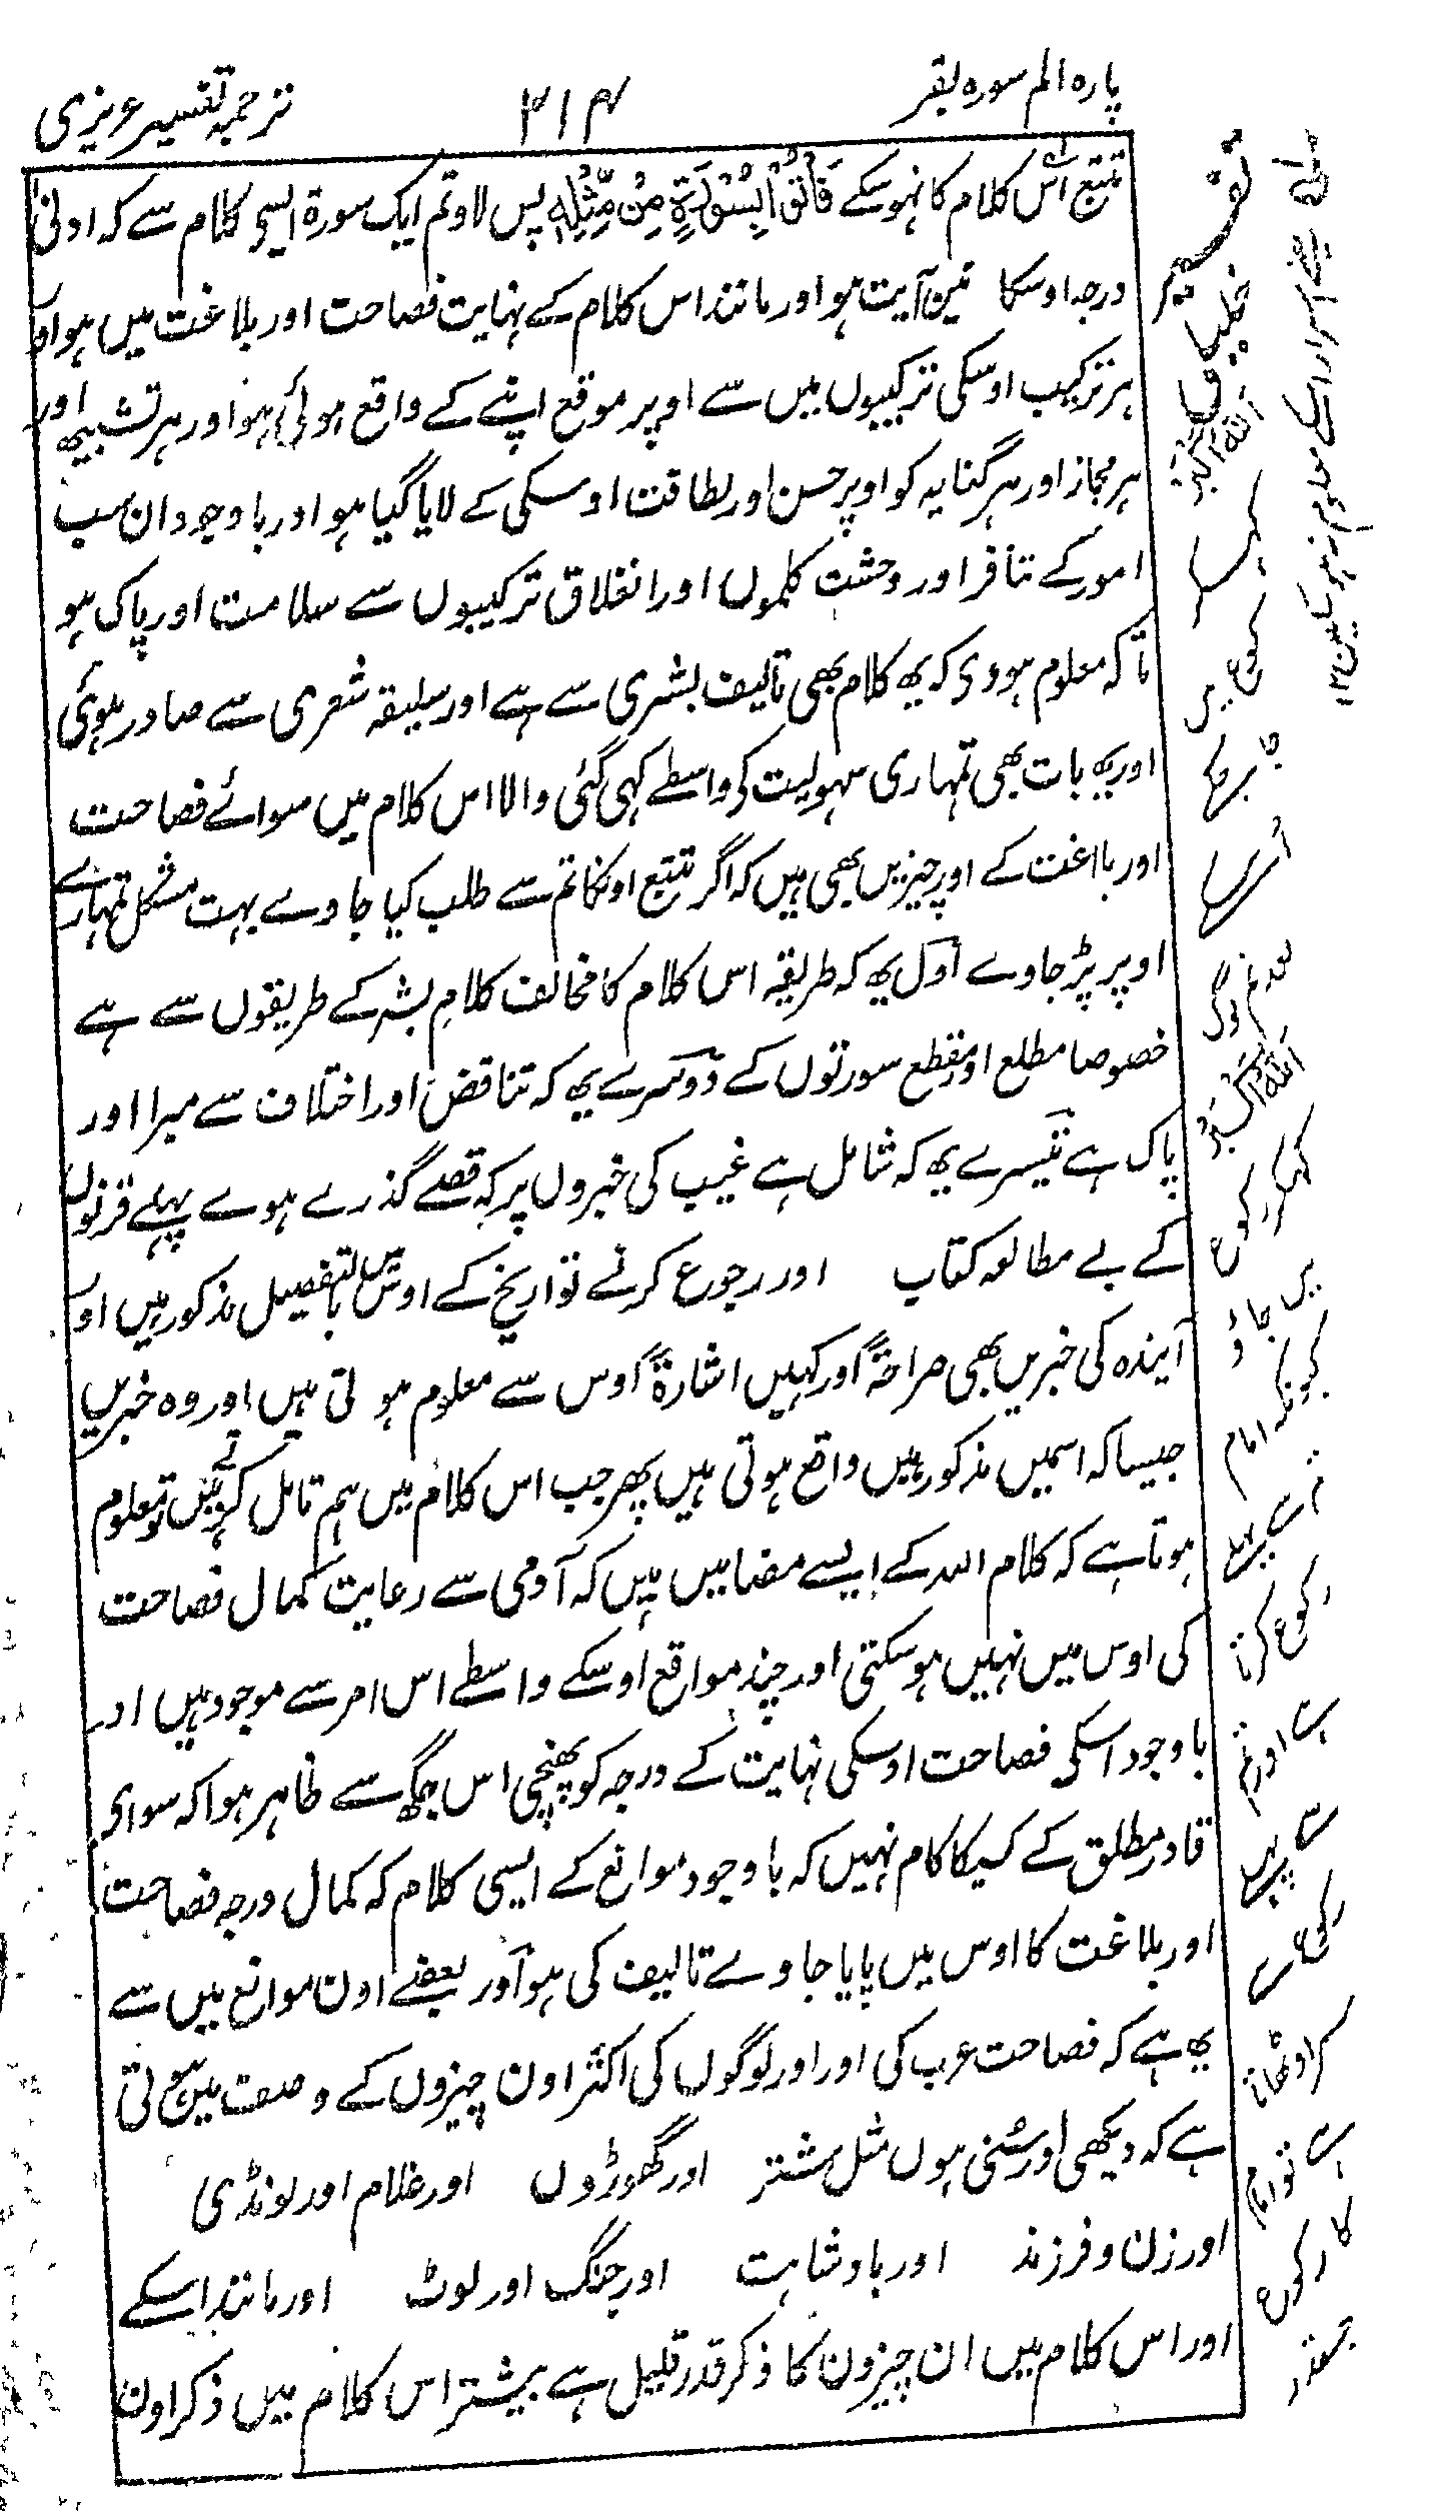 پاره الم سوره بقر
۳۱۴
ترجمہ تفسیر عزیزی
تتبع اس کلام کا نہو سکے فَاْتُوْا بِسُوْرَةٍ مِّنْ مِّثْلِهٖ پس لاو تم ایک سورۃ ایسی کلام سے کہ ادنیٰ
درجہ اوسکا تین آیت ہو اور مانند اس کلام کے نہایت فصاحت اور بلاغت میں ہو اور
ہر ترکیب اوسکی ترکیبوں میں سے اوپر موقع اپنے کے واقع ہوئی ہو اور ہر تشبیہ اور
ہر مجاز اور ہر کنایہ کو اوپر حسن اور لطافت اوسکی کے لایا گیا ہو اور باوجود ان سب
امور کے تنافر اور وحشت کلموں اور انغلاق ترکیبوں سے سلامت اور پاک ہو
تا کہ معلوم ہووی کہ یہ کلام بھی تالیف بشری سے ہے اور سلیقہ شعری سے صادر ہوئی
اور یہ بات بھی تمہاری سہولیت کی واسطے کہی گئی والا اس کلام میں سوائے فصاحت
اور بلاغت کے اور چیزیں بھی ہیں کہ اگر تتبع اونکا تم سے طلب کیا جاوے بہت مشکل تمہارے
اوپر پڑ جاوے اول یہ کہ طریقہ اس کلام کا مخالف کلام بشر کے طریقوں سے ہے
خصوصا مطلع اور مقطع سورتوں کے دوسرے یہ کہ تناقض اور اختلاف سے مبرا اور
پاک ہے تیسرے یہ کہ شامل ہے غیب کی خبروں پر کہ قصے گذرے ہوے پہلے قرنوں
کے بے مطالعہ کتاب اور رجوع کرنے تواریخ کے اوس میں بالتفصیل مذکور ہیں اور
آیندہ کی خبریں بھی صراحۃً اور کہیں اشارۃً اوس سے معلوم ہوتی ہیں اور وہ خبریں
جیسا کہ اسمیں مذکور ہیں واقع ہوتی ہیں پھر جب اس کلام میں ہم تامل کرتے ہیں تو معلوم
ہوتا ہے کہ کلام اللہ کے ایسے مضامیں ہیں کہ آدمی سے رعایت کمال فصاحت
کی اوس میں نہیں ہو سکتی اور چند موانع اوسکے واسطے اس امر سے موجود ہیں اور
باوجود اسکی فصاحت اوسکی نہایت کے درجہ کو پھنچی اس جگہ سے ظاہر ہوا کہ سوای
قادر مطلق کے کسیکا کام نہیں کہ باوجود موانع کے ایسی کلام کہ کمال درجہ فصاحت
اور بلاغت کا اوس میں پایا جاوے تالیف کی ہو اور بعضے اون موانع میں سے
یہ ہے کہ فصاحت عرب کی اور اور لوگوں کی اکثر اون چیزوں کے وصف میں ہوتی
ہے کہ دیکھی اور سُنی ہوں مثل شتر اور گھوڑوں اور غلام اور لونڈی
اور زن و فرزند اور بادشاہت اور جنگ اور لوٹ اور مانند اسکے
اور اس کلام میں ان چیزون کا ذکر قدر قلیل ہے بیشتر اس کلام میں ذکر اون
اللہ اکبر
اللہ اکبر
جاؤ
کیونکہ امام
رکوع کرتا
ہے اور تم
سر اوٹھاتا
ہے تو امام
کا رکوع